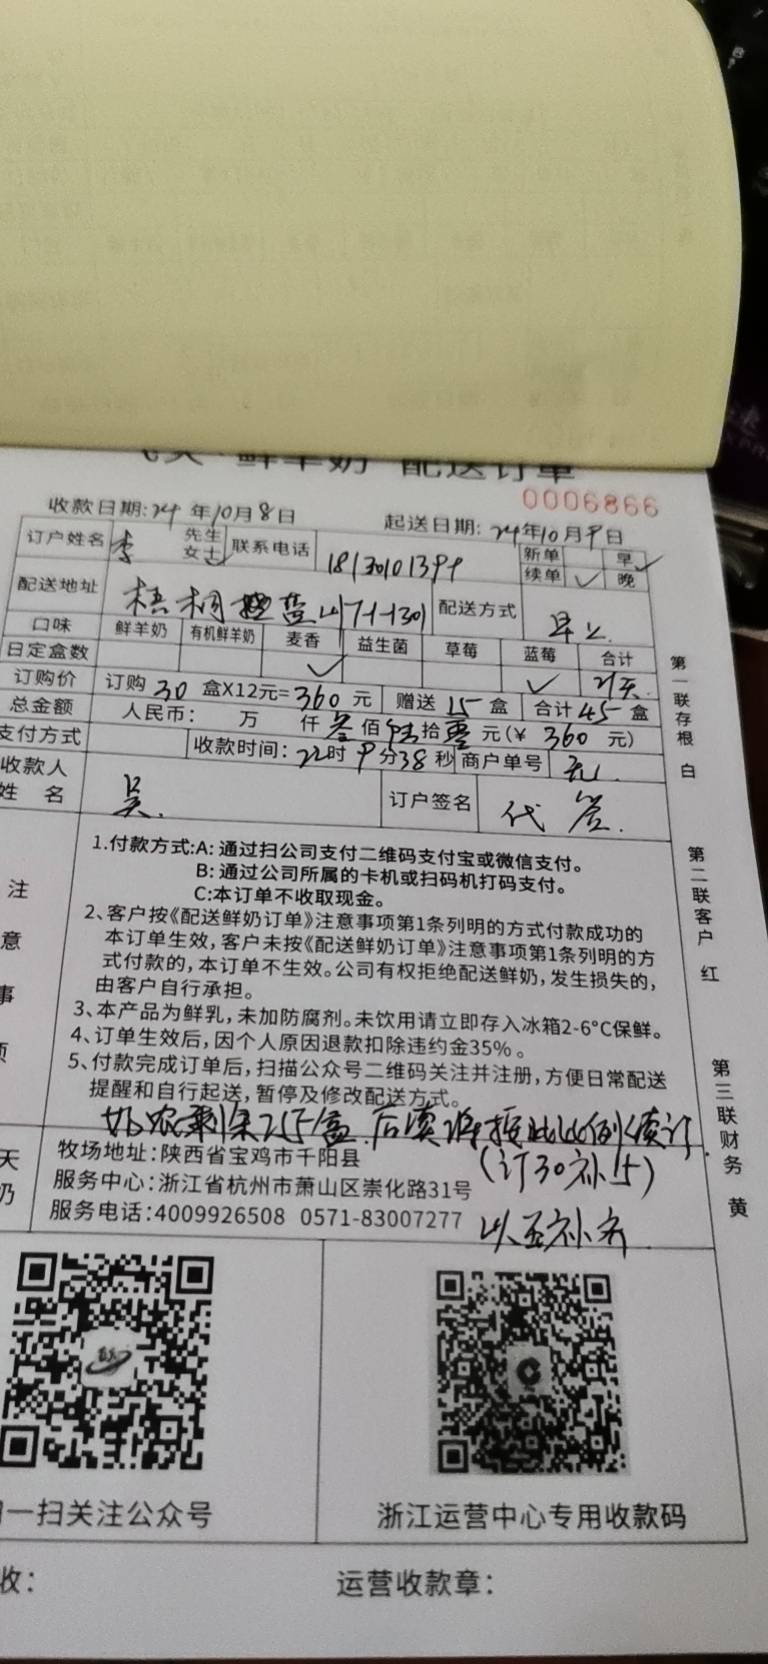 鲜羊奶 配送订单
0006866
收款日期:24年10月8日 起送日期:24年10月9日
订户姓名 李 先生 女士✓ 联系电话 18130101399 新单 早✓
续单 ✓ 晚
配送地址 梧桐 蓝山7-1-1301 配送方式 早上.
口味 鲜羊奶 有机鲜羊奶 麦香 益生菌 草莓 蓝莓 合计
日定盒数 ✓ ✓
订购价 订购 30 盒X12元=360元 赠送 15 盒 合计 45 盒
总金额 人民币: 万 仟 叁佰陆拾零元(¥ 360 元)
支付方式 收款时间:22时9分38秒 商户单号 无.
收款人
姓名 吴. 订户签名 代签.
注
意
事
项
1.付款方式:A:通过扫公司支付二维码支付宝或微信支付。
B:通过公司所属的卡机或扫码机打码支付。
C:本订单不收取现金。
2、客户按《配送鲜奶订单》注意事项第1条列明的方式付款成功的
本订单生效,客户未按《配送鲜奶订单》注意事项第1条列明的方
式付款的,本订单不生效。公司有权拒绝配送鲜奶,发生损失的,
由客户自行承担。
3、本产品为鲜乳,未加防腐剂。未饮用请立即存入冰箱2-6°C保鲜。
4、订单生效后,因个人原因退款扣除违约金35%。
5、付款完成订单后,扫描公众号二维码关注并注册,方便日常配送
提醒和自行起送,暂停及修改配送方式。
奶农剩余255盒 后续 按此比例续订.
(订30补15)
以至补齐.
天
奶
牧场地址:陕西省宝鸡市千阳县
服务中心:浙江省杭州市萧山区崇化路31号
服务电话:4009926508 0571-83007277
一扫关注公众号
浙江运营中心专用收款码
收:
运营收款章:
第一联存根 白
第二联客户 红
第三联财务 黄